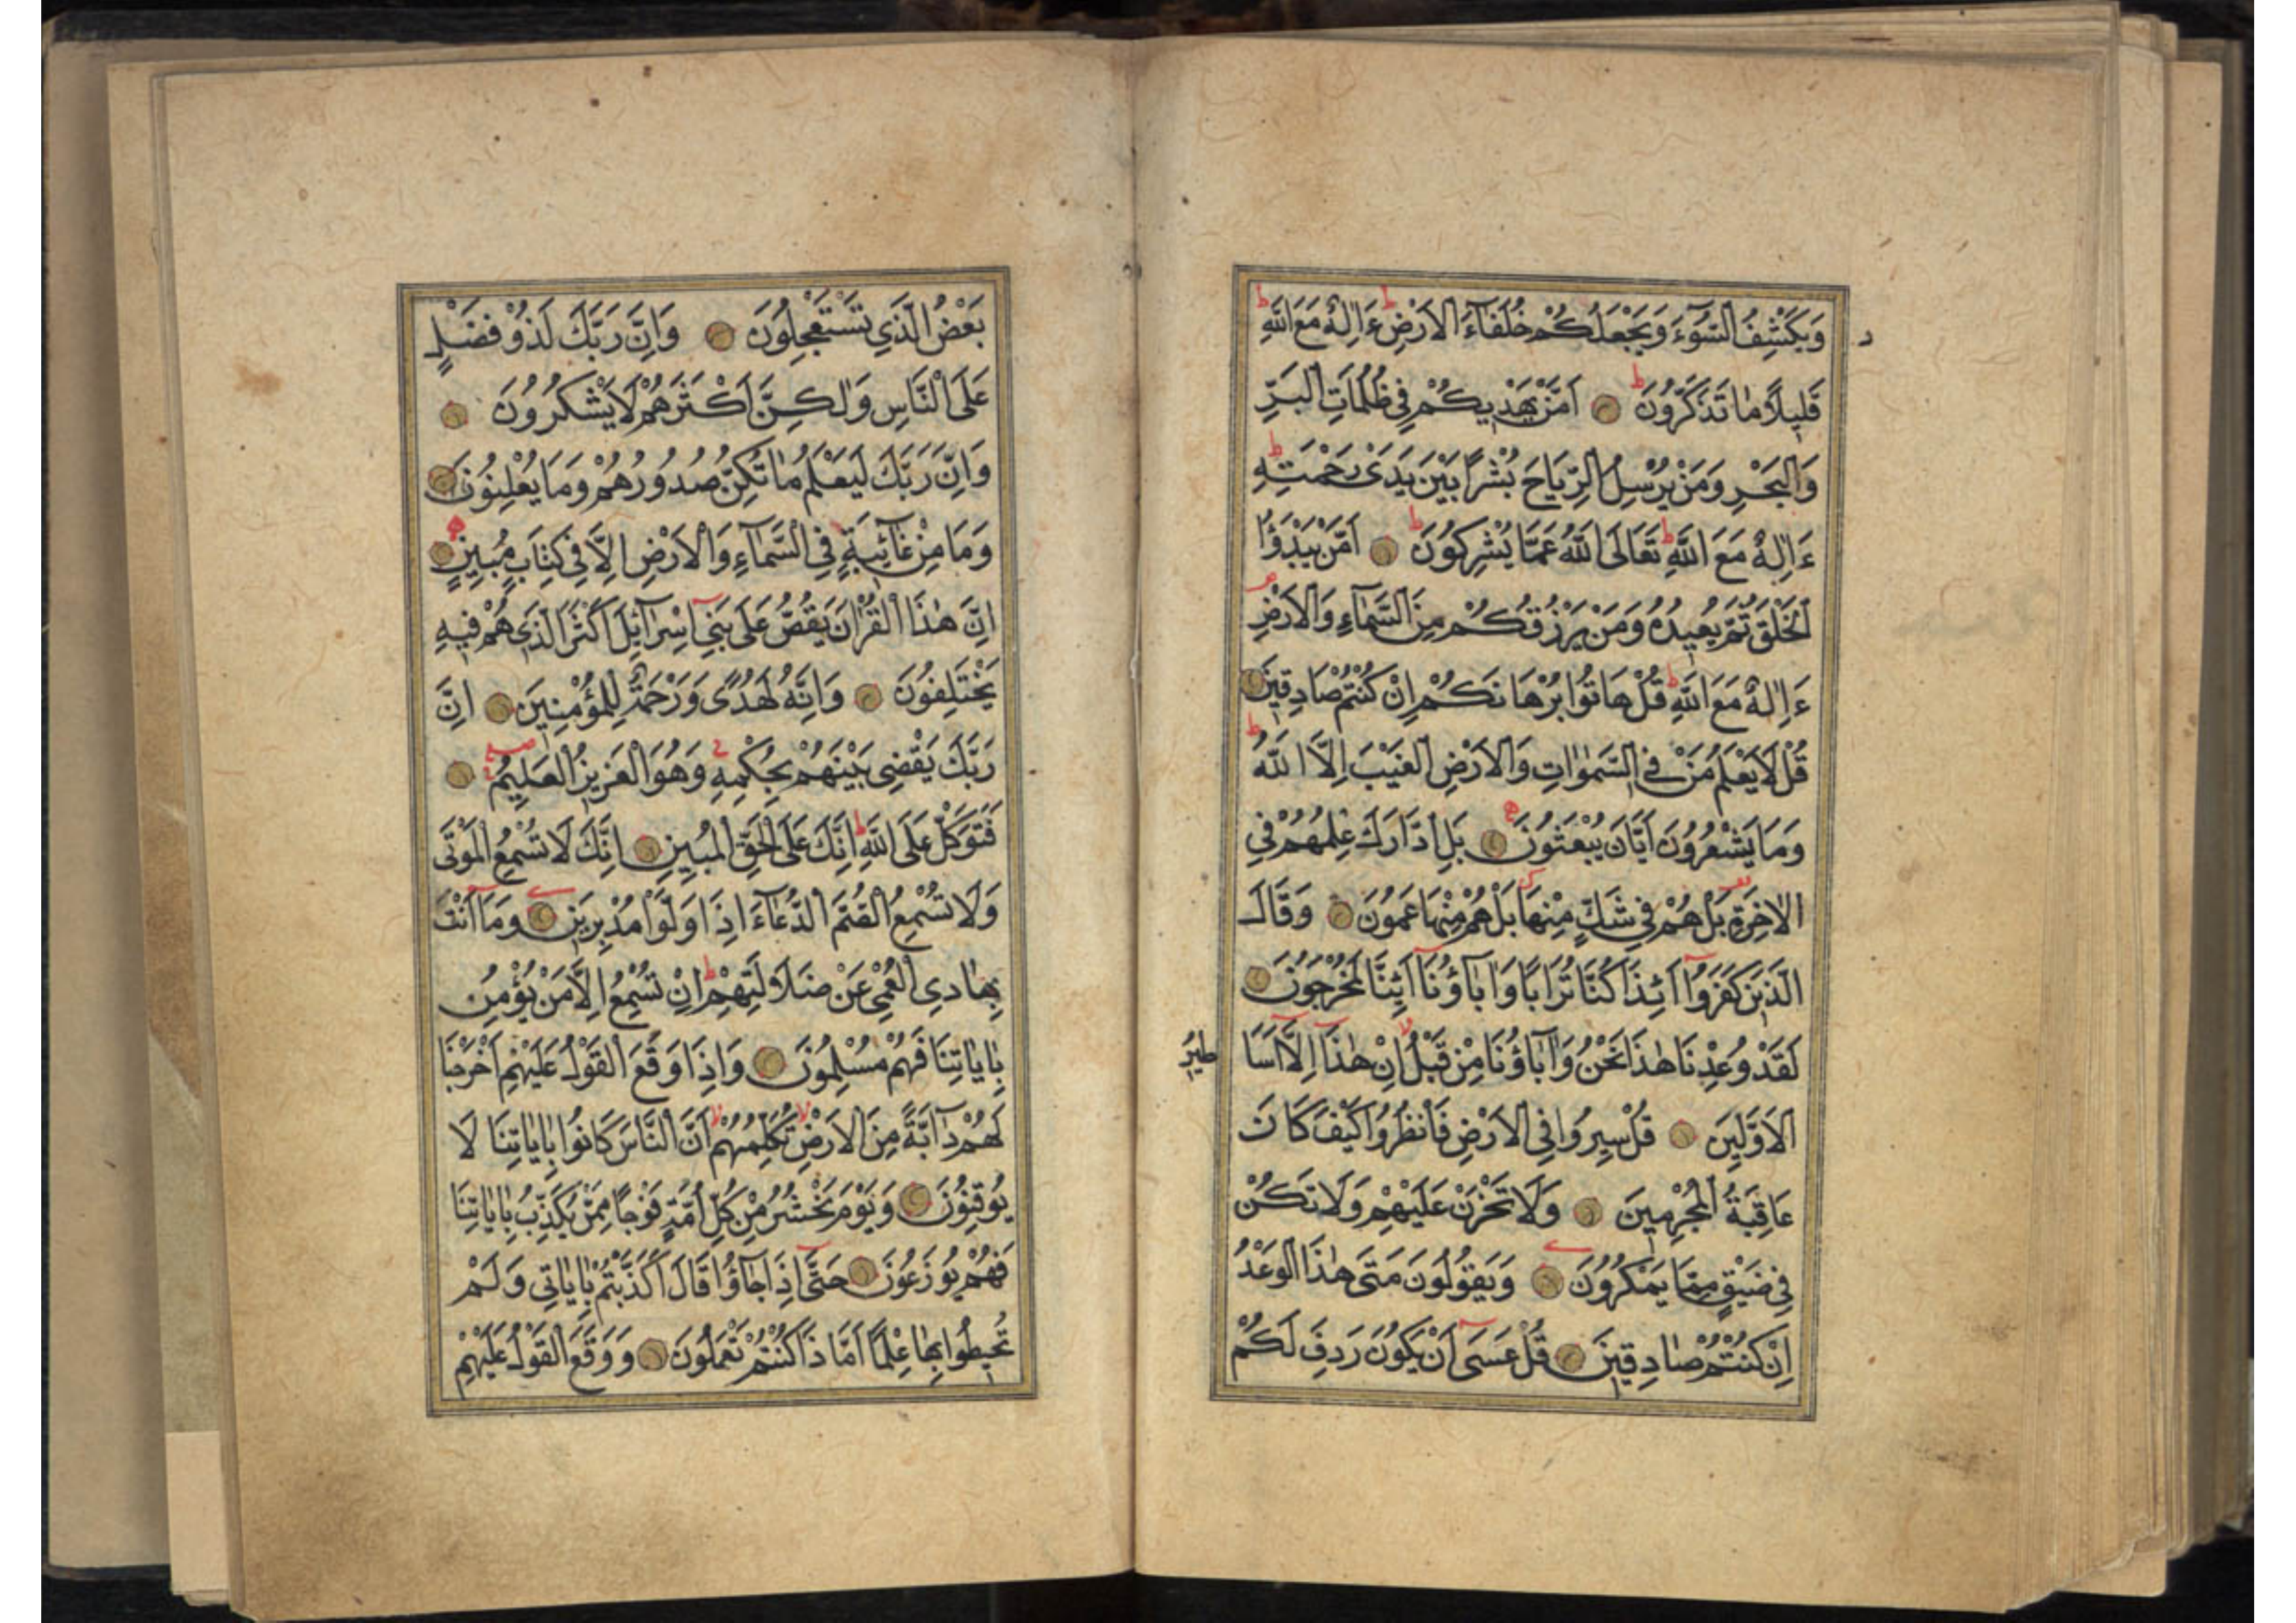 وَيَكْشِفُ السُّوٓءَ وَيَجْعَلُكُمْ خُلَفَآءَ الْاَرْضِ ءَاِلٰهٌ مَعَ اللّٰهِ
قَلِيلًا مَا تَذَكَّرُونَ اَمَّنْ يَهْدِيكُمْ فِي ظُلُمَاتِ الْبَرِّ
وَالْبَحْرِ وَمَنْ يُرْسِلُ الرِّيَاحَ بُشْرًا بَيْنَ يَدَىْ رَحْمَتِهِ
ءَاِلٰهٌ مَعَ اللّٰهِ تَعَالَى اللّٰهُ عَمَّا يُشْرِكُونَ اَمَّنْ يَبْدَؤُا
الْخَلْقَ ثُمَّ يُعِيدُهُ وَمَنْ يَرْزُقُكُمْ مِنَ السَّمَآءِ وَالْاَرْضِ
ءَاِلٰهٌ مَعَ اللّٰهِ قُلْ هَاتُوا بُرْهَانَكُمْ اِنْ كُنْتُمْ صَادِقِينَ
قُلْ لَا يَعْلَمُ مَنْ فِي السَّمٰوَاتِ وَالْاَرْضِ الْغَيْبَ اِلَّا اللّٰهُ
وَمَا يَشْعُرُونَ اَيَّانَ يُبْعَثُونَ بَلِ ادَّارَكَ عِلْمُهُمْ فِي
الْاٰخِرَةِ بَلْ هُمْ فِي شَكٍّ مِنْهَا بَلْ هُمْ مِنْهَا عَمُونَ وَقَالَ
الَّذِينَ كَفَرُوٓا اَئِذَا كُنَّا تُرَابًا وَاٰبَآؤُنَآ اَئِنَّا لَمُخْرَجُونَ
لَقَدْ وُعِدْنَا هٰذَا نَحْنُ وَاٰبَآؤُنَا مِنْ قَبْلُ اِنْ هٰذَآ اِلَّآ اَسَا
طِيرُ
الْاَوَّلِينَ قُلْ سِيرُوا فِي الْاَرْضِ فَانْظُرُوا كَيْفَ كَانَ
عَاقِبَةُ الْمُجْرِمِينَ وَلَا تَحْزَنْ عَلَيْهِمْ وَلَا تَكُنْ
فِي ضَيْقٍ مِمَّا يَمْكُرُونَ وَيَقُولُونَ مَتَى هٰذَا الْوَعْدُ
اِنْ كُنْتُمْ صَادِقِينَ قُلْ عَسَىٓ اَنْ يَكُونَ رَدِفَ لَكُمْ
بَعْضُ الَّذِي تَسْتَعْجِلُونَ وَاِنَّ رَبَّكَ لَذُو فَضْلٍ
عَلَى النَّاسِ وَلٰكِنَّ اَكْثَرَهُمْ لَا يَشْكُرُونَ
وَاِنَّ رَبَّكَ لَيَعْلَمُ مَا تُكِنُّ صُدُورُهُمْ وَمَا يُعْلِنُونَ
وَمَا مِنْ غَآئِبَةٍ فِي السَّمَآءِ وَالْاَرْضِ اِلَّا فِي كِتَابٍ مُبِينٍ
اِنَّ هٰذَا الْقُرْاٰنَ يَقُصُّ عَلَى بَنِيٓ اِسْرَآئِلَ اَكْثَرَ الَّذِي هُمْ فِيهِ
يَخْتَلِفُونَ وَاِنَّهُ لَهُدًى وَرَحْمَةٌ لِلْمُؤْمِنِينَ اِنَّ
رَبَّكَ يَقْضِي بَيْنَهُمْ بِحُكْمِهِ وَهُوَ الْعَزِيزُ الْعَلِيمُ
فَتَوَكَّلْ عَلَى اللّٰهِ اِنَّكَ عَلَى الْحَقِّ الْمُبِينِ اِنَّكَ لَا تُسْمِعُ الْمَوْتَى
وَلَا تُسْمِعُ الصُّمَّ الدُّعَآءَ اِذَا وَلَّوْا مُدْبِرِينَ وَمَآ اَنْتَ
بِهَادِي الْعُمْيِ عَنْ ضَلَالَتِهِمْ اِنْ تُسْمِعُ اِلَّا مَنْ يُؤْمِنُ
بِاٰيَاتِنَا فَهُمْ مُسْلِمُونَ وَاِذَا وَقَعَ الْقَوْلُ عَلَيْهِمْ اَخْرَجْنَا
لَهُمْ دَآبَّةً مِنَ الْاَرْضِ تُكَلِّمُهُمْ اَنَّ النَّاسَ كَانُوا بِاٰيَاتِنَا لَا
يُوقِنُونَ وَيَوْمَ نَحْشُرُ مِنْ كُلِّ اُمَّةٍ فَوْجًا مِمَّنْ يُكَذِّبُ بِاٰيَاتِنَا
فَهُمْ يُوزَعُونَ حَتَّىٓ اِذَا جَآؤُا قَالَ اَكَذَّبْتُمْ بِاٰيَاتِي وَلَمْ
تُحِيطُوا بِهَا عِلْمًا اَمَّا ذَا كُنْتُمْ تَعْمَلُونَ وَوَقَعَ الْقَوْلُ عَلَيْهِمْ